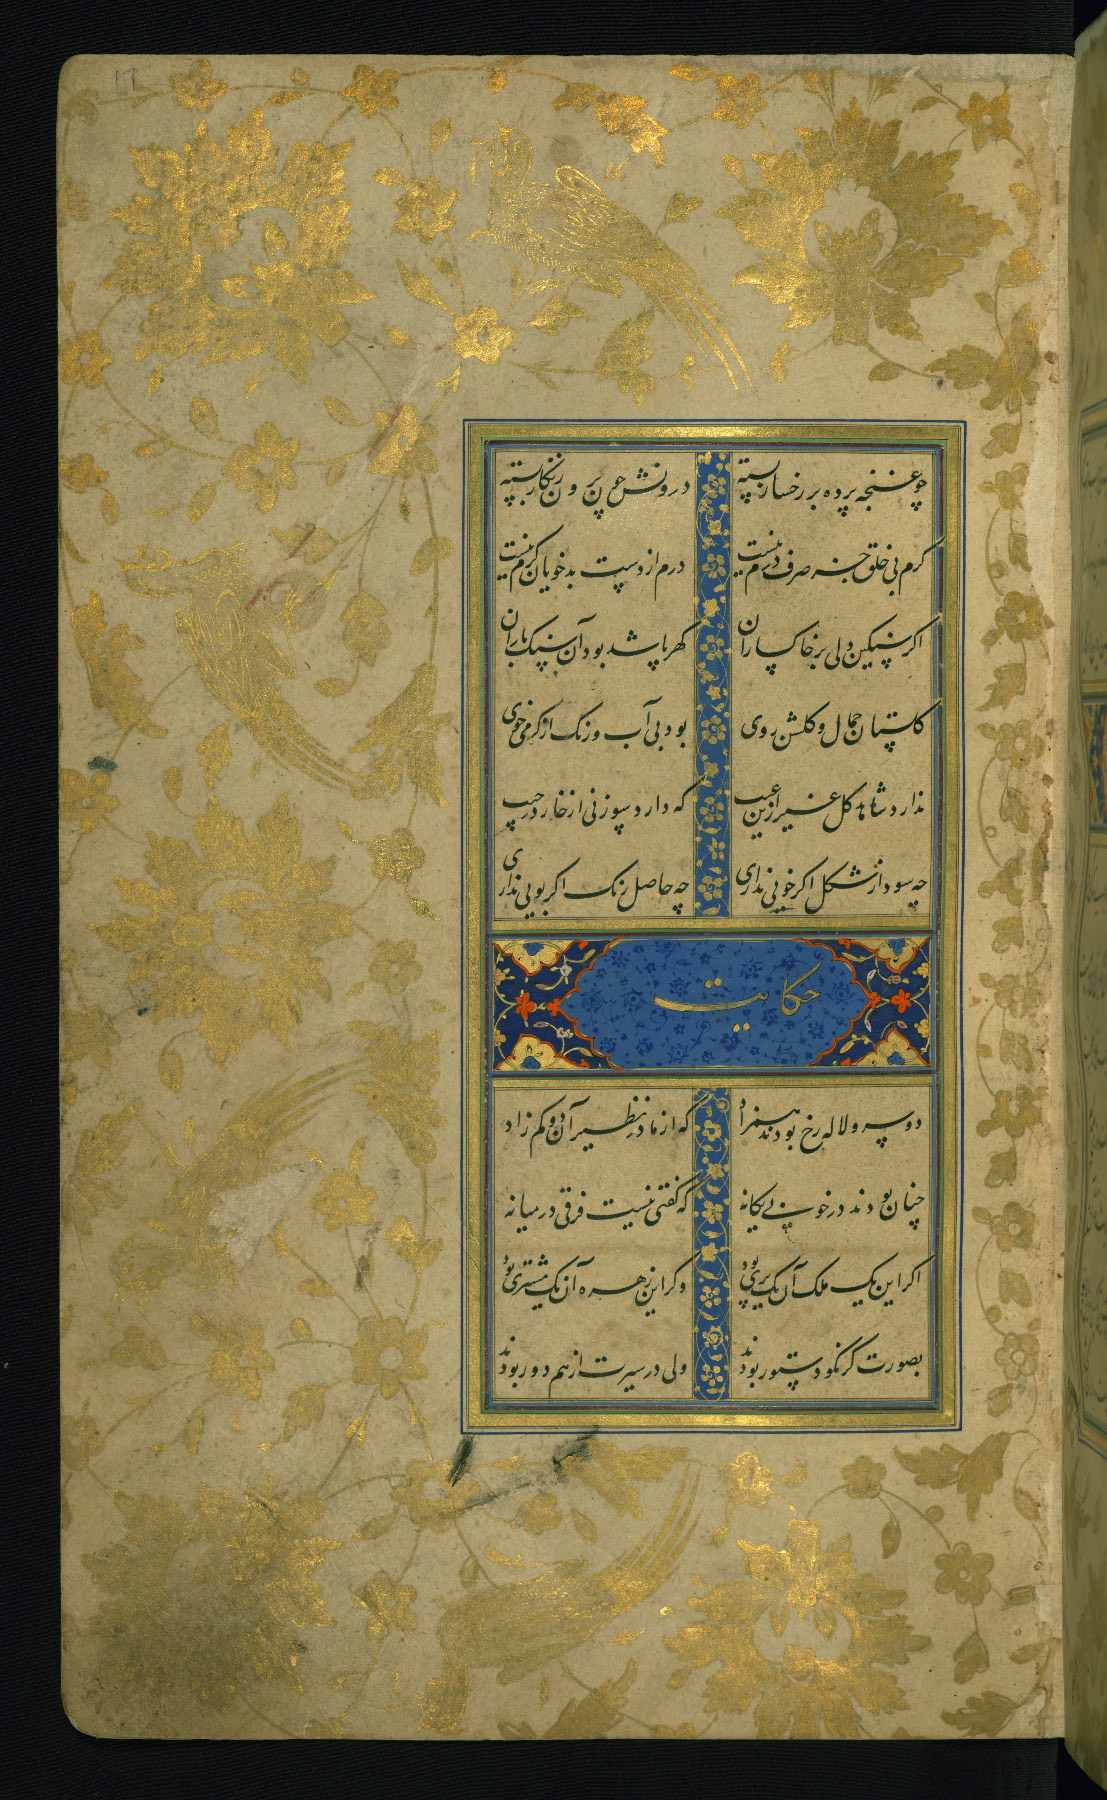 ۱۶
چو غنچه پرده بر رخسار بسته درونش چون پر و زنکار بسته
کرم بی خلق جز صرف درم نیست درم از دست بدخویان کرم نیست
اکر سنکین دلی بر خاکساران کهر باشد بود آن سنک باران
کلستان جمال و کلشن روی بود بی آب و رنک از کرمی خوی
ندارد شاهد کل غیر ازین عیب که دارد سوزنی از خار در جیب
چه سود از شکل اکر خوبی نداری چه حاصل رنک اکر بویی نداری
حکایت
دو سرو لاله رخ بودند همزاد که از مادر نظیر آن دو کم زاد
چنان بودند در خوبی یکانه که کفتی نیست فرقی در میانه
اکر این یک ملک آن یک پری بود وکر این زهره آن یک مشتری بود
بصورت کر نکو دستور بودند ولی در سیرت از هم دور بودند